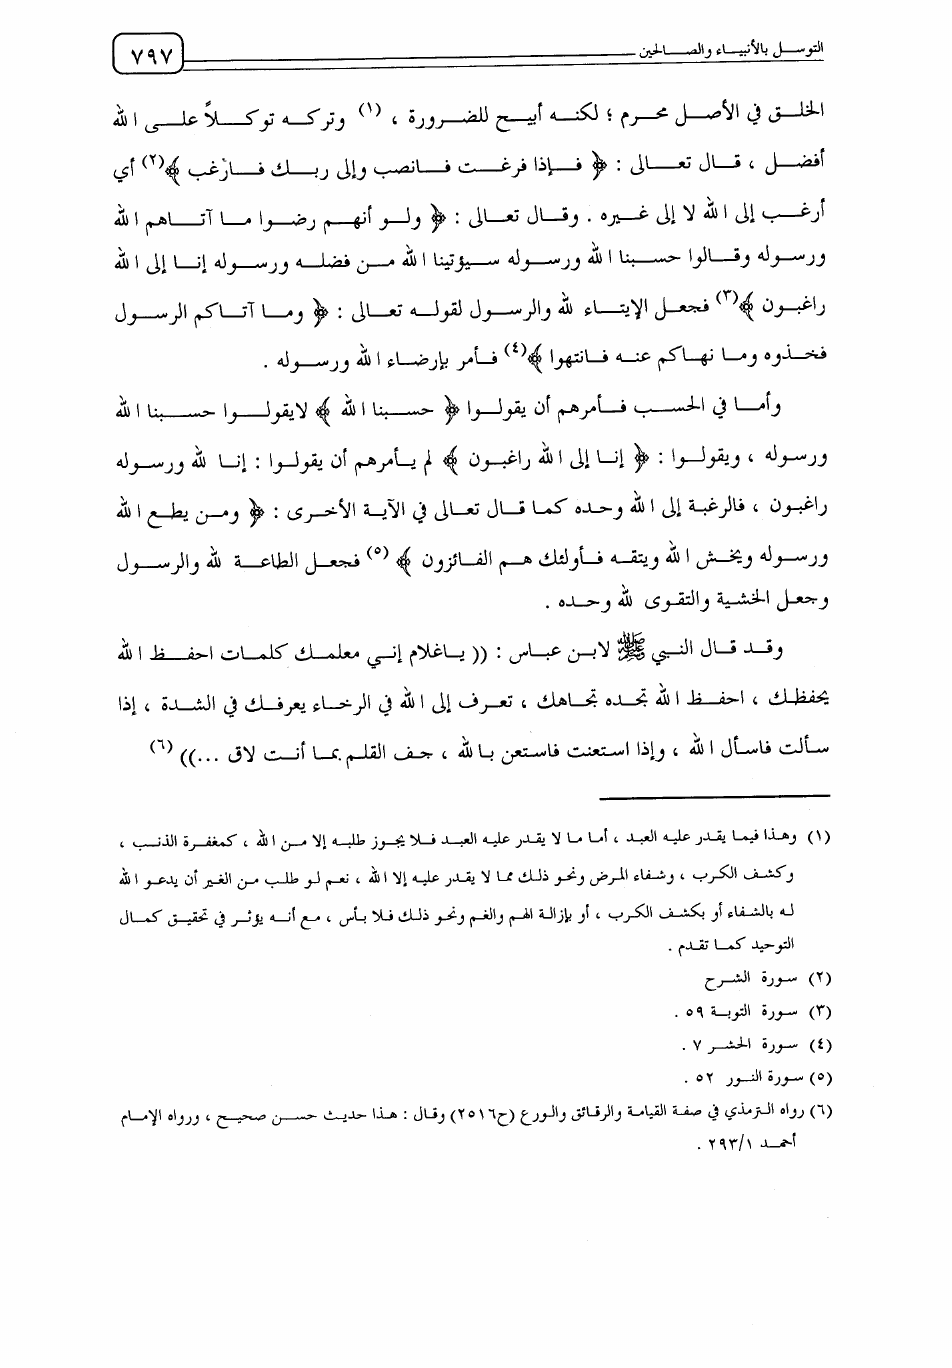 التوسل بالأنبياء والصالحين
٧٩٧
الخلق في الأصل محرم ؛ لكنه أبيح للضرورة ، (١) وتركه توكلاً على الله
أفضل ، قال تعالى : ﴿ فإذا فرغت فانصب وإلى ربك فارغب ﴾(٢) أي
أرغب إلى الله لا إلى غيره . وقال تعالى : ﴿ ولو أنهم رضوا ما آتاهم الله
ورسوله وقالوا حسبنا الله ورسوله سيؤتينا الله من فضله ورسوله إنا إلى الله
راغبون ﴾(٣) فجعل الإيتاء لله والرسول لقوله تعالى : ﴿ وما آتاكم الرسول
فخذوه وما نهاكم عنه فانتهوا ﴾(٤) فأمر بإرضاء الله ورسوله .
وأما في الحسب فأمرهم أن يقولوا ﴿ حسبنا الله ﴾ لايقولوا حسبنا الله
ورسوله ، ويقولوا : ﴿ إنا إلى الله راغبون ﴾ لم يأمرهم أن يقولوا : إنا لله ورسوله
راغبون ، فالرغبة إلى الله وحده كما قال تعالى في الآية الأخرى : ﴿ ومن يطع الله
ورسوله ويخش الله ويتقه فأولئك هم الفائزون ﴾ (٥) فجعل الطاعة لله والرسول
وجعل الخشية والتقوى لله وحده .
وقد قال النبي ﷺ لابن عباس : (( ياغلام إني معلمك كلمات احفظ الله
يحفظك ، احفظ الله تجده تجاهك ، تعرف إلى الله في الرخاء يعرفك في الشدة ، إذا
سألت فاسأل الله ، وإذا استعنت فاستعن بالله ، جف القلم بما أنت لاق ...)) (٦)
(١) وهذا فيما يقدر عليه العبد ، أما ما لا يقدر عليه العبد فلا يجوز طلبه إلا من الله ، كمغفرة الذنب ،
وكشف الكرب ، وشفاء المرض ونحو ذلك مما لا يقدر عليه إلا الله ، نعم لو طلب من الغير أن يدعو الله
له بالشفاء أو بكشف الكرب ، أو بإزالة الهم والغم ونحو ذلك فلا بأس ، مع أنه يؤثر في تحقيق كمال
التوحيد كما تقدم .
(٢) سورة الشرح
(٣) سورة التوبة ٥٩ .
(٤) سورة الحشر ٧ .
(٥) سورة النور ٥٢ .
(٦) رواه الترمذي في صفة القيامة والرقائق والورع (ح٢٥١٦) وقال : هذا حديث حسن صحيح ، ورواه الإمام
أحمد ٢٩٣/١ .